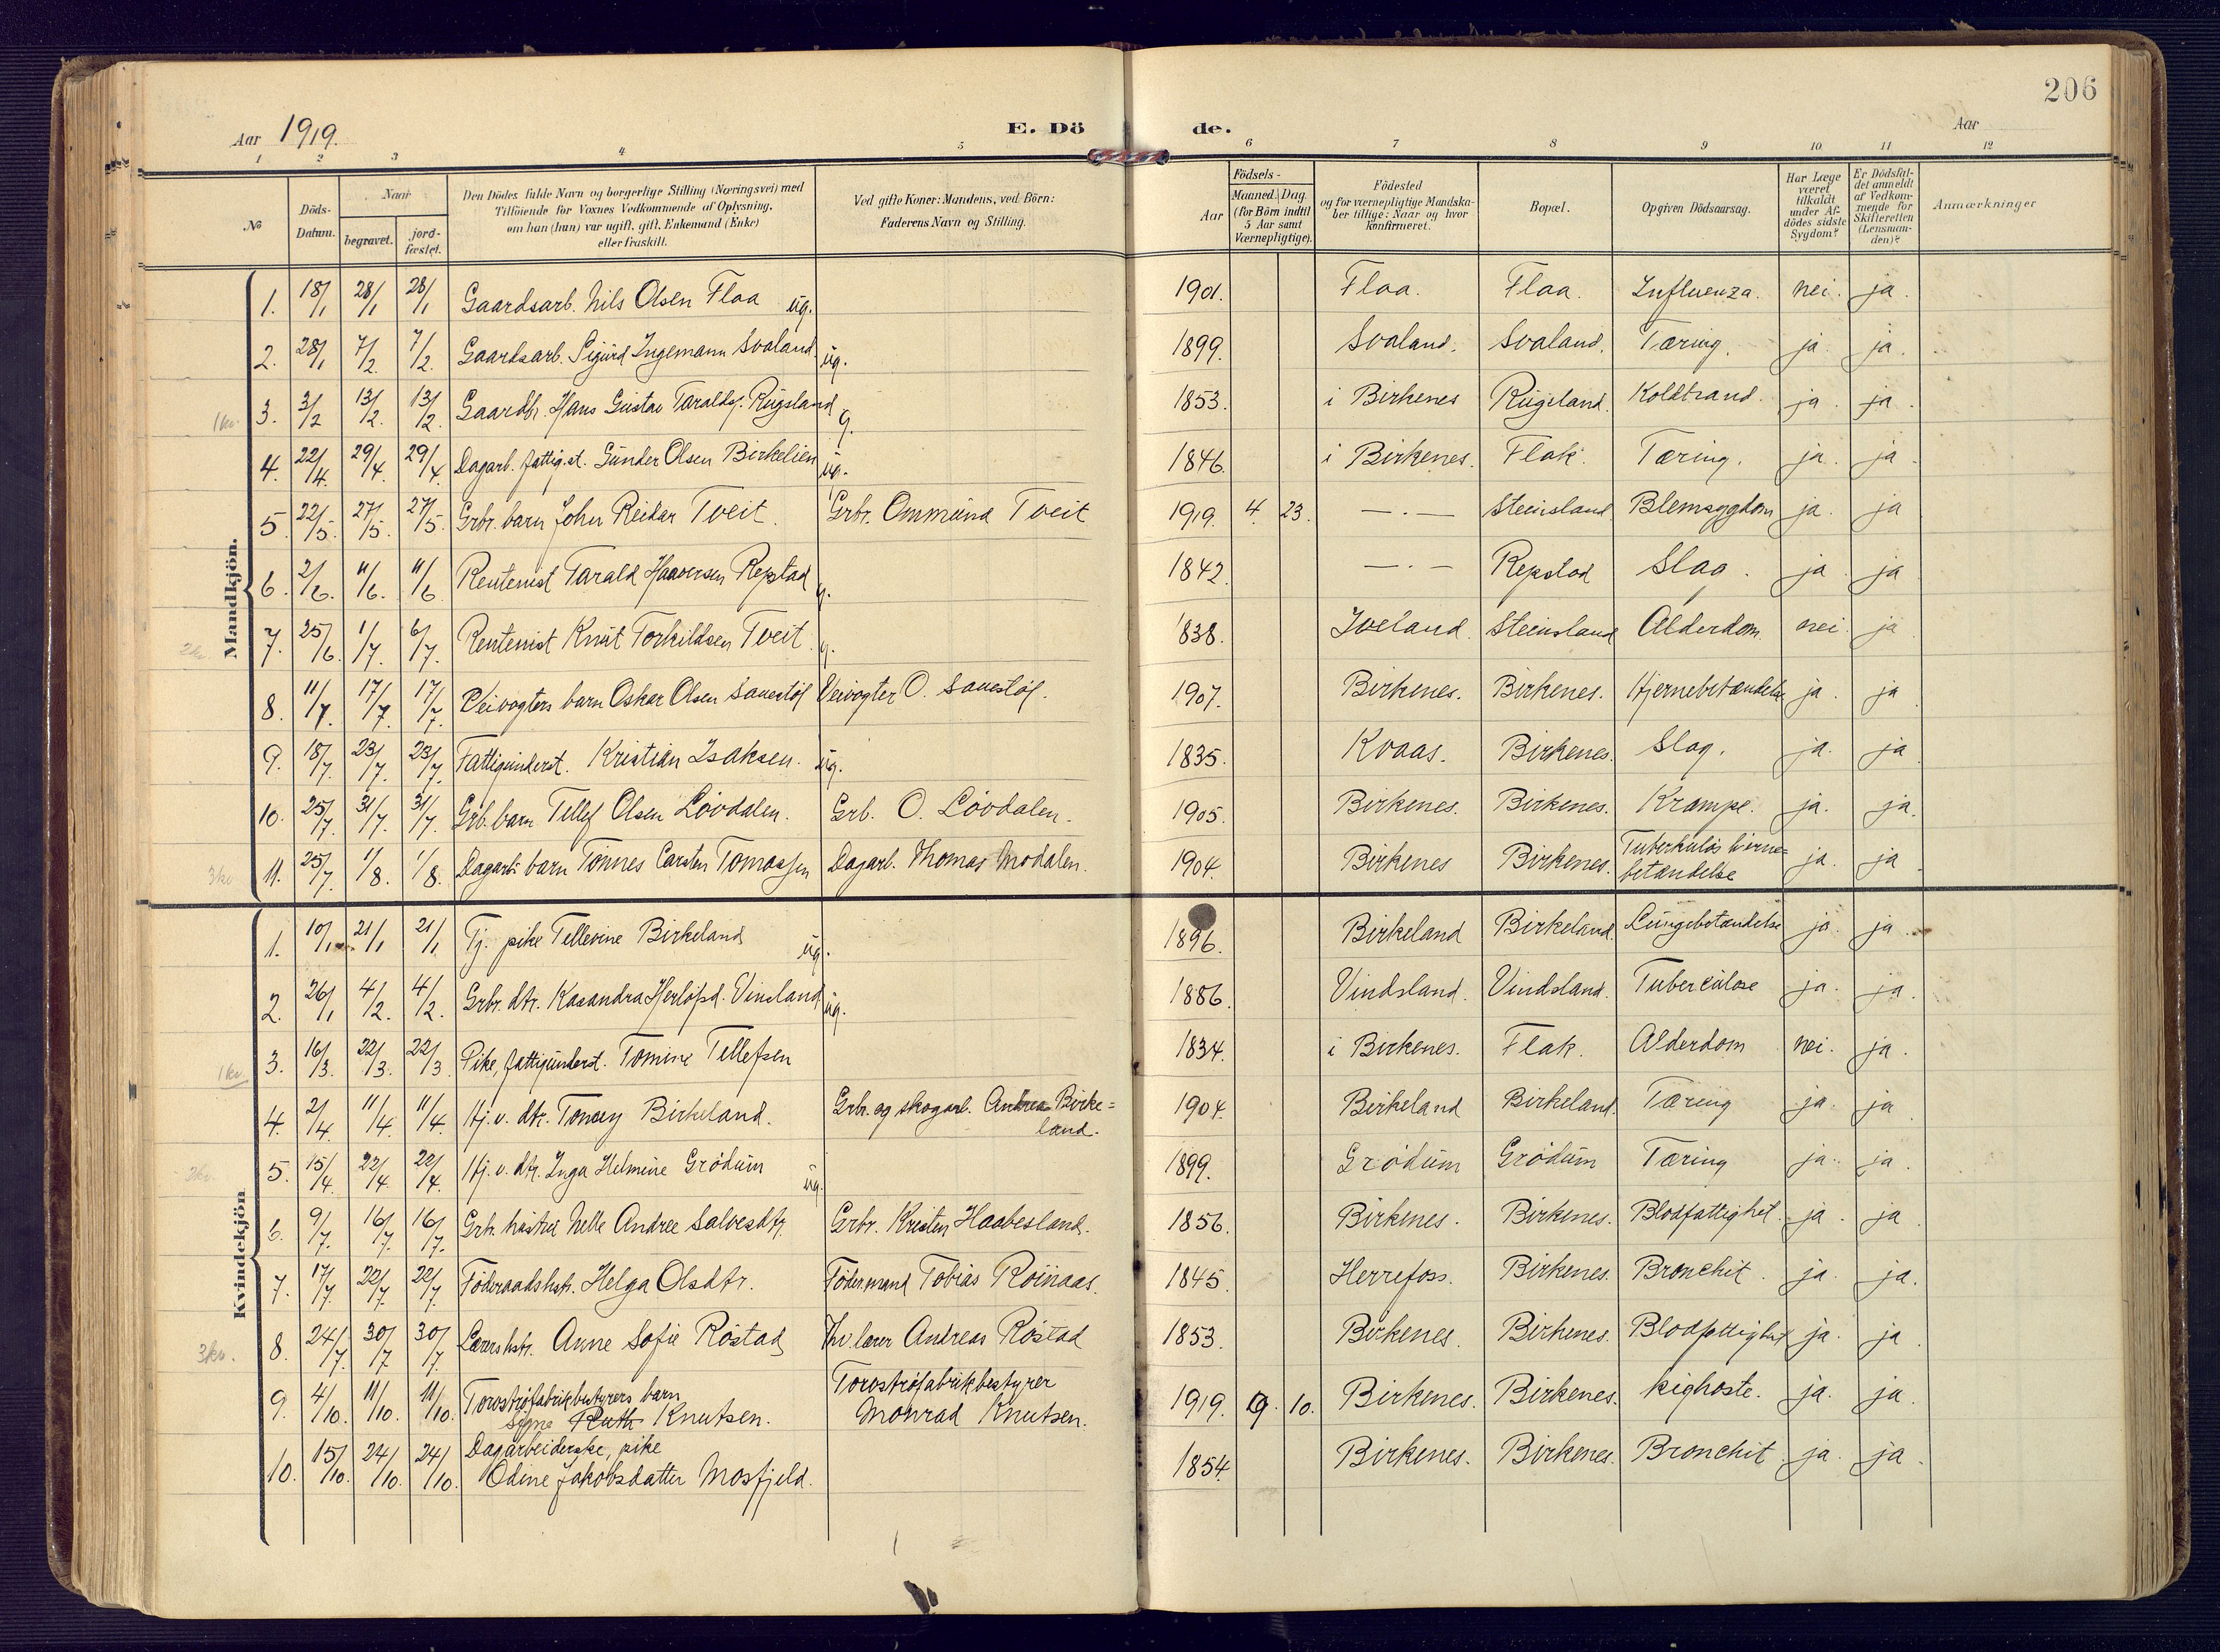 206
Aar 1919.
E. Dö de.
Aar
1 2 3 4 5 6 7 8 9 10 11 12
№
Döds-Datum.
Naar
begravet.
jord-fæstet.
Den Dödes fulde Navn og borgerlige Stilling (Næringsvei) med
Tilföiende for Voxnes Vedkommende af Oplysning,
om han (hun) var ugift, gift, Enkemand (Enke)
eller fraskilt.
Ved gifte Koner: Mandens, ved Börn:
Faderens Navn og Stilling.
Födsels-
Aar
Maaned. Dag.
(for Börn indtil
5 Aar samt
Værnepligtige).
Födested
og for værnepligtige Mandska-
ber tillige: Naar og hvor
konfirmeret.
Bopæl.
Opgiven Dödsaarsag.
Har Læge
været
tilkaldt
under Af-
dödes sidste
Sygdom?
Er Dödsfal-
det anmeldt
af Vedkom-
mende for
Skifteretten
(Lensman-
den)?
Anmærkninger
Mandkjön.
1. 18/1 28/1 28/1 Gaardsarb. Nils Olsen Flaa ug. 1901. Flaa. Flaa. Influenza. nei. ja.
2. 28/1 7/2 7/2 Gaardsarb. Sigurd Ingemann Svaland ug. 1899. Svaland. Svaland. Tæring. ja. ja.
1kv. 3. 3/2 13/2 13/2 Gaardbr. Hans Gustav Taraldsf. Rugsland g. 1853. i Birkenes Rugsland. Koldbrand. ja. ja.
4. 22/4 29/4 29/4 Dagarb. fattig.st. Gunder Olsen Birkelien ug. 1846. i Birkenes. Flak. Tæring. ja. ja
5. 22/5. 27/5. 27/5. Grbr. barn John Reidar Tveit. Grbr. Ommund Tveit 1919. 4. 23. — . — Steinsland Blemsygdom ja. ja
6. 2/6. 11/6. 11/6 Rentenist Tarald Haaversen Repstad g. 1842. — . — Repstad Slag. ja ja
2kv. 7. 25/6. 1/7. 6/7. Rentenist Knut Torkildsen Tveit. g. 1838. Iveland. Steinsland Alderdom. nei. ja
8. 11/7 17/7. 17/7. Veivogters barn Oskar Olsen Sauestøl Veivogter O. Sauestøl. 1907. Birkenes. Birkenes. Hjernebetændelse ja. ja
9. 18/7. 23/7. 23/7. Fattigunderst. Kristian Isaksen. ug. 1835. Kvaas. Birkenes. Slag. ja. ja
10. 25/7. 31/7. 31/7. Grb. barn Tellef Olsen Lövdalen. Grb. O. Lövdalen. 1905. Birkenes. Birkenes. Krampe. ja. ja.
3kv 11. 25/7. 1/8. 1/8. Dagarb. barn Tönnes Carsten Tomassen Dagarb. Thomas Modalen. 1904. Birkenes Birkenes. Tuberkuløs hjerne=
betændelse ja. ja
Kvindekjön
1. 10/1 21/1 21/1 Tj. pike Tellevine Birkeland ug. 1896. Birkeland Birkeland. Lungebetændelse ja. ja
2. 26/1 4/2. 4/2. Grbr. dtr. Kasandra Herlofsd. Vinsland ug. 1886. Vindsland. Vindsland. Tuberculose ja. ja.
1kv. 3. 16/3. 22/3. 22/3 Pike, fattigunderst. Tomine Tellefsen 1834. i Birkenes. Flak. Alderdom nei. ja.
4. 2/4. 11/4. 11/4. Hj. v. dtr. Tomey Birkeland. Grbr. og skogarb. Andreas Birke=
land. 1904. Birkeland Birkeland. Tæring ja. ja
2kv. 5. 15/4. 22/4. 22/4. Hj. v. dtr. Inga Helmine Grödum ug. 1899. Grödum Grödum Tæring ja. ja.
6. 9/7. 16/7. 16/7. Grbr. hustru Nelle Andree Salvesdtr. Grbr. Kristen Haabesland. 1856. Birkenes. Birkenes. Blodfattighet. ja. ja.
7. 17/7. 22/7. 22/7. Föderaadshstr. Helga Olsdtr. Födermand Tobias Roinaas. 1845. Herrefoss. Birkenes. Bronchit. ja. ja.
3kv. 8. 24/7. 30/7 30/7. Lærershstr. Anne Sofie Röstad Fhv. lærer Andreas Röstad 1853. Birkenes. Birkenes. Blodfattighet ja. ja.
9. 4/10. 11/10. 11/10. Torvströfabrikbestyrers barn
Signe Ruth Knutsen. Torvströfabrikbestyrer
Monrad Knutsen. 1919. 9. 10. Birkenes. Birkenes. kighoste. ja. ja.
10. 15/10. 24/10. 24/10. Dagarbeiderske, pike
Odine Jakobsdatter Mosfjeld. 1854. Birkenes. Birkenes. Bronchit. ja. ja.